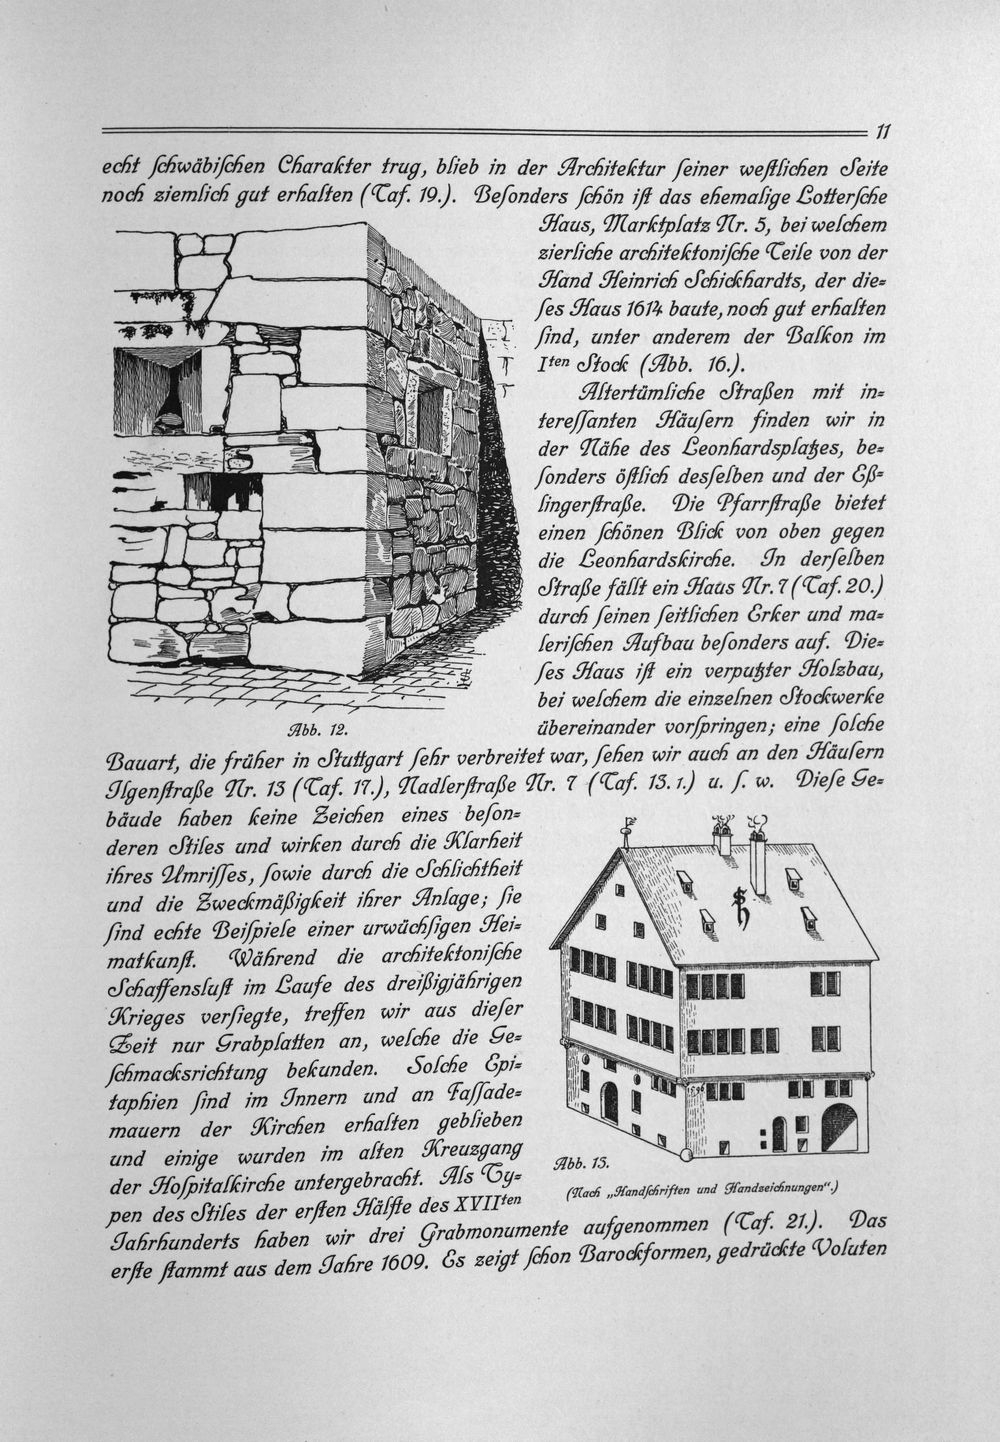 11
echt ſchwäbiſchen Charakter trug, blieb in der Architektur ſeiner weſtlichen Seite
noch ziemlich gut erhalten (Taf. 19.). Beſonders ſchön iſt das ehemalige Lotterſche
Haus, Marktplatz Nr. 5, bei welchem
zierliche architektoniſche Teile von der
Hand Heinrich Schickhardts, der die⸗
ſes Haus 1614 baute, noch gut erhalten
ſind, unter anderem der Balkon im
Iten Stock (Abb. 16.).
Altertümliche Straßen mit in⸗
tereſſanten Häuſern finden wir in
der Nähe des Leonhardsplatzes, be⸗
ſonders öſtlich desſelben und der Eß⸗
lingerſtraße. Die Pfarrſtraße bietet
einen ſchönen Blick von oben gegen
die Leonhardskirche. In derſelben
Straße fällt ein Haus Nr. 7 (Taf. 20.)
durch ſeinen ſeitlichen Erker und ma⸗
leriſchen Aufbau beſonders auf. Die⸗
ſes Haus iſt ein verputzter Holzbau,
bei welchem die einzelnen Stockwerke
übereinander vorſpringen; eine ſolche
Abb. 12.
Bauart, die früher in Stuttgart ſehr verbreitet war, ſehen wir auch an den Häuſern
Ilgenſtraße Nr. 13 (Taf. 17.), Nadlerſtraße Nr. 7 (Taf. 13. 1.) u. ſ. w. Dieſe Ge⸗
bäude haben keine Zeichen eines beſon⸗
deren Stiles und wirken durch die Klarheit
ihres Umriſſes, ſowie durch die Schlichtheit
und die Zweckmäßigkeit ihrer Anlage; ſie
ſind echte Beiſpiele einer urwüchſigen Hei⸗
matkunſt. Während die architektoniſche
Schaffensluſt im Laufe des dreißigjährigen
Krieges verſiegte, treffen wir aus dieſer
Zeit nur Grabplatten an, welche die Ge⸗
ſchmacksrichtung bekunden. Solche Epi⸗
taphien ſind im Innern und an Faſſade⸗
mauern der Kirchen erhalten geblieben
und einige wurden im alten Kreuzgang
der Hoſpitalkirche untergebracht. Als Ty⸗
pen des Stiles der erſten Hälfte des XVIIten
1596
Abb. 13.
(Nach „Handſchriften und Handzeichnungen“.)
Jahrhunderts haben wir drei Grabmonumente aufgenommen (Taf. 21.). Das
erſte ſtammt aus dem Jahre 1609. Es zeigt ſchon Barockformen, gedrückte Voluten